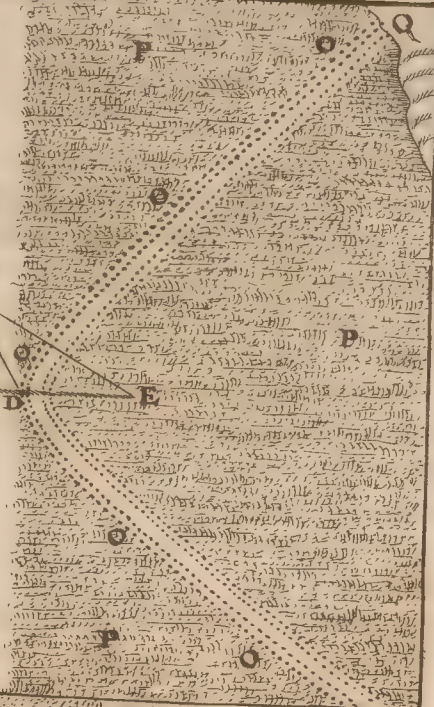 Q
P O
O
P
O
D E
O
P
O